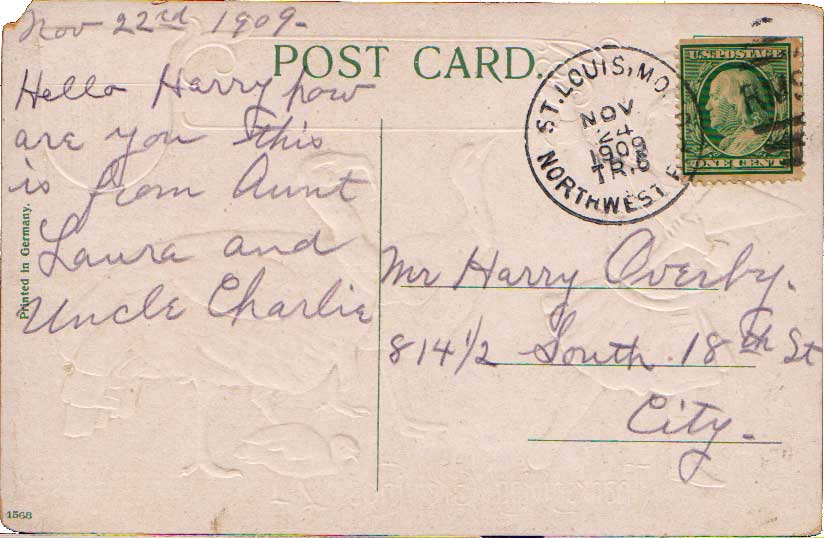 Nov 22nd 1909-
POST CARD.
Hello Harry how
are you this
is from Aunt
Laura and
Uncle Charlie
Printed in Germany.
1568
ST. LOUIS, MO.
NOV
24
1909
TR.8
NORTHWEST
U.S. POSTAGE
ONE CENT
RMS
Mr Harry Overby.
814 1/2 South 18th St
City.